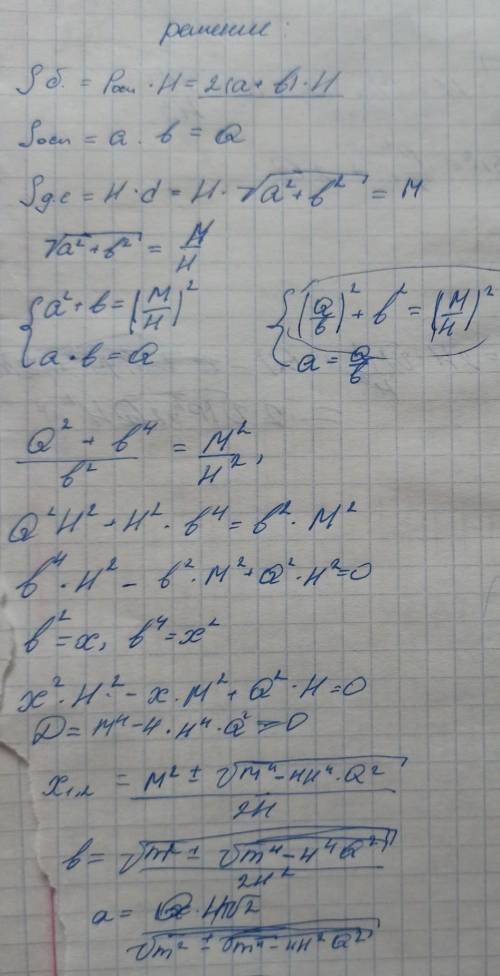 решение:
Sб. = Pосн · H = 2(a + b) · H
Sосн = a · b = Q
Sд.с = H · d = H · √(a² + b²) = M
√(a² + b²) = M/H
{ a² + b = (M/H)²    { (Q/b)² + b² = (M/H)²
a · b = Q    a = Q/b
(Q² + b⁴)/b² = M²/H²,
Q²H² + H² · b⁴ = b² · M²
b⁴ · H² - b² · M² + Q² · H² = 0
b² = x, b⁴ = x²
x² · H² - x · M² + Q² · H = 0
D = M⁴ - 4 · H⁴ · Q² > 0
x₁,₂ = (M² ± √(M⁴ - 4H⁴ · Q²))/2H
b = √(m² ± √(m⁴ - H⁴Q²))/2H²
a = Q · H√2/√(m² ± √(m⁴ - 4H²Q²))